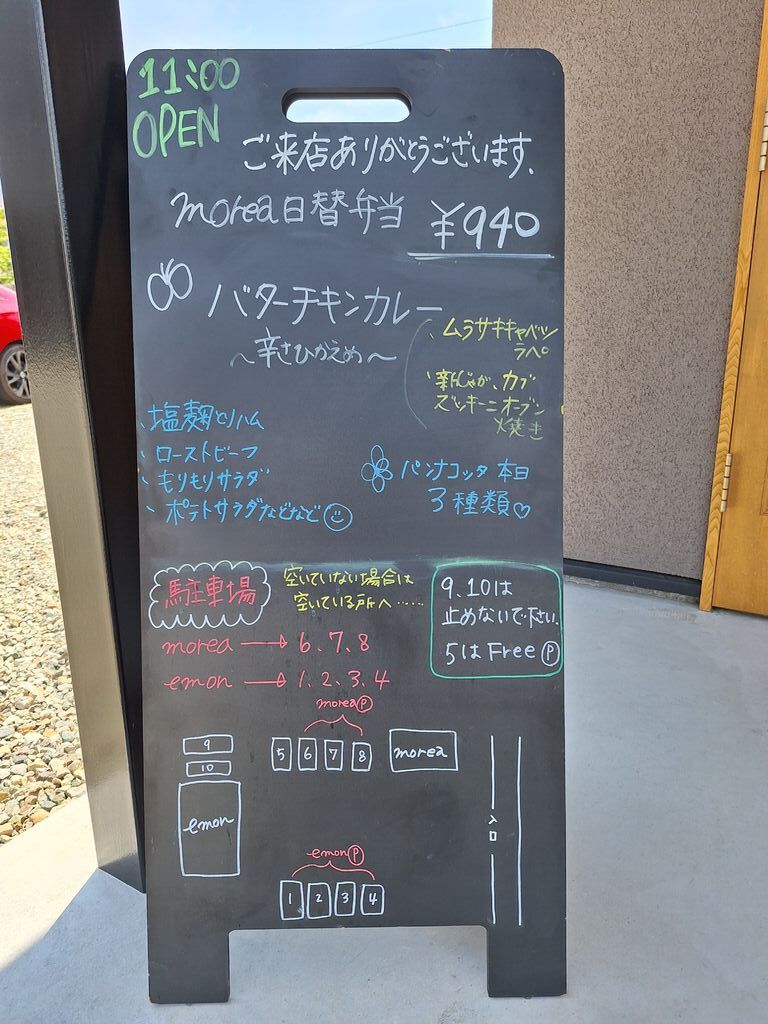 11:00
OPEN
ご来店ありがとうございます.
morea日替弁当 ¥940
バターチキンカレー
〜辛さひかえめ〜
、ムラサキキャベツ
ラペ
、新じゃが、カブ
ズッキーニオーブン
焼き
、塩麹とりハム
、ローストビーフ
、もりもりサラダ
、ポテトサラダなどなど
パンナコッタ 本日
3種類♡
駐車場
空いていない場合は
空いている所へ……
9、10は
止めないで下さい.
5はFree Ⓟ
morea → 6、7、8
emon → 1、2、3、4
moreaⓅ
9
10
5 6 7 8
morea
emon
入口
emonⓅ
1 2 3 4